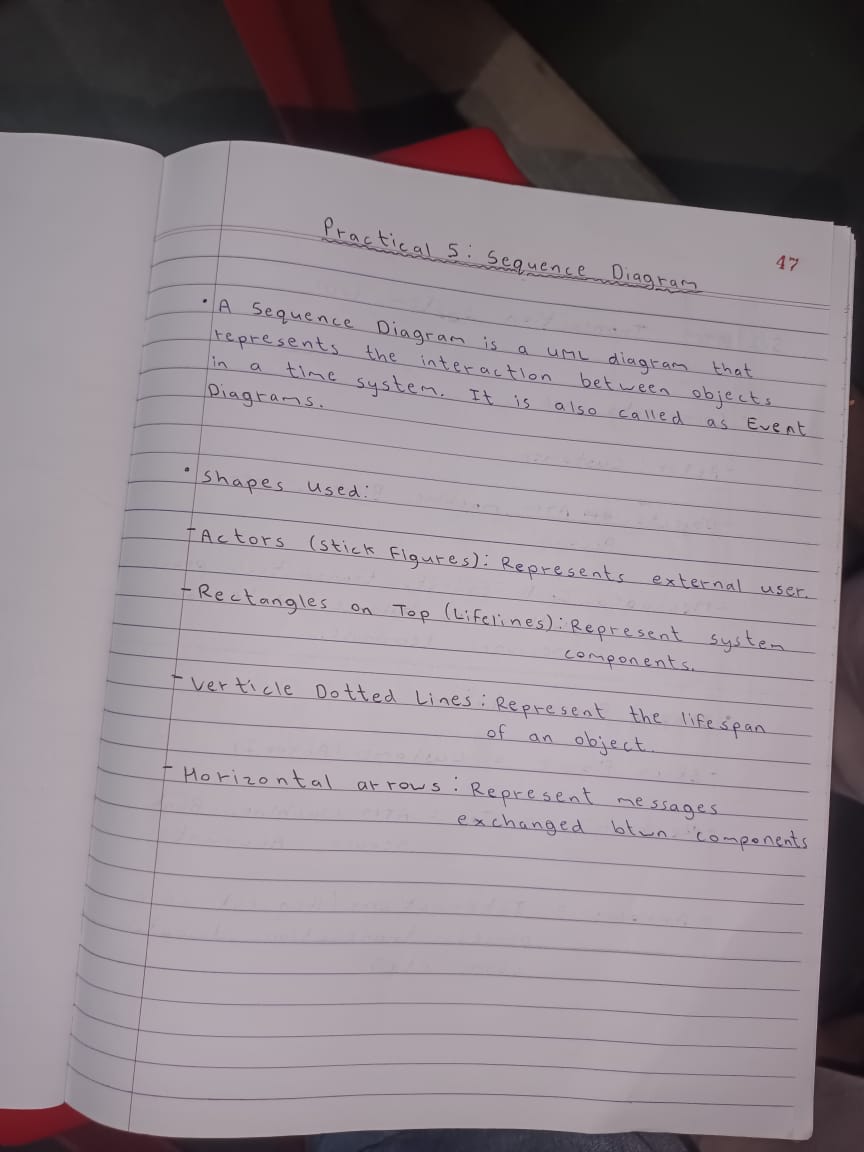 Practical 5: Sequence Diagram
47
• A Sequence Diagram is a UML diagram that
represents the interaction between objects
in a time system. It is also called as Event
Diagrams.
• Shapes used:
- Actors (Stick Figures): Represents external user.
- Rectangles on Top (Lifelines): Represent system
components.
- Verticle Dotted Lines: Represent the lifespan
of an object.
- Horizontal arrows: Represent messages
exchanged btwn components